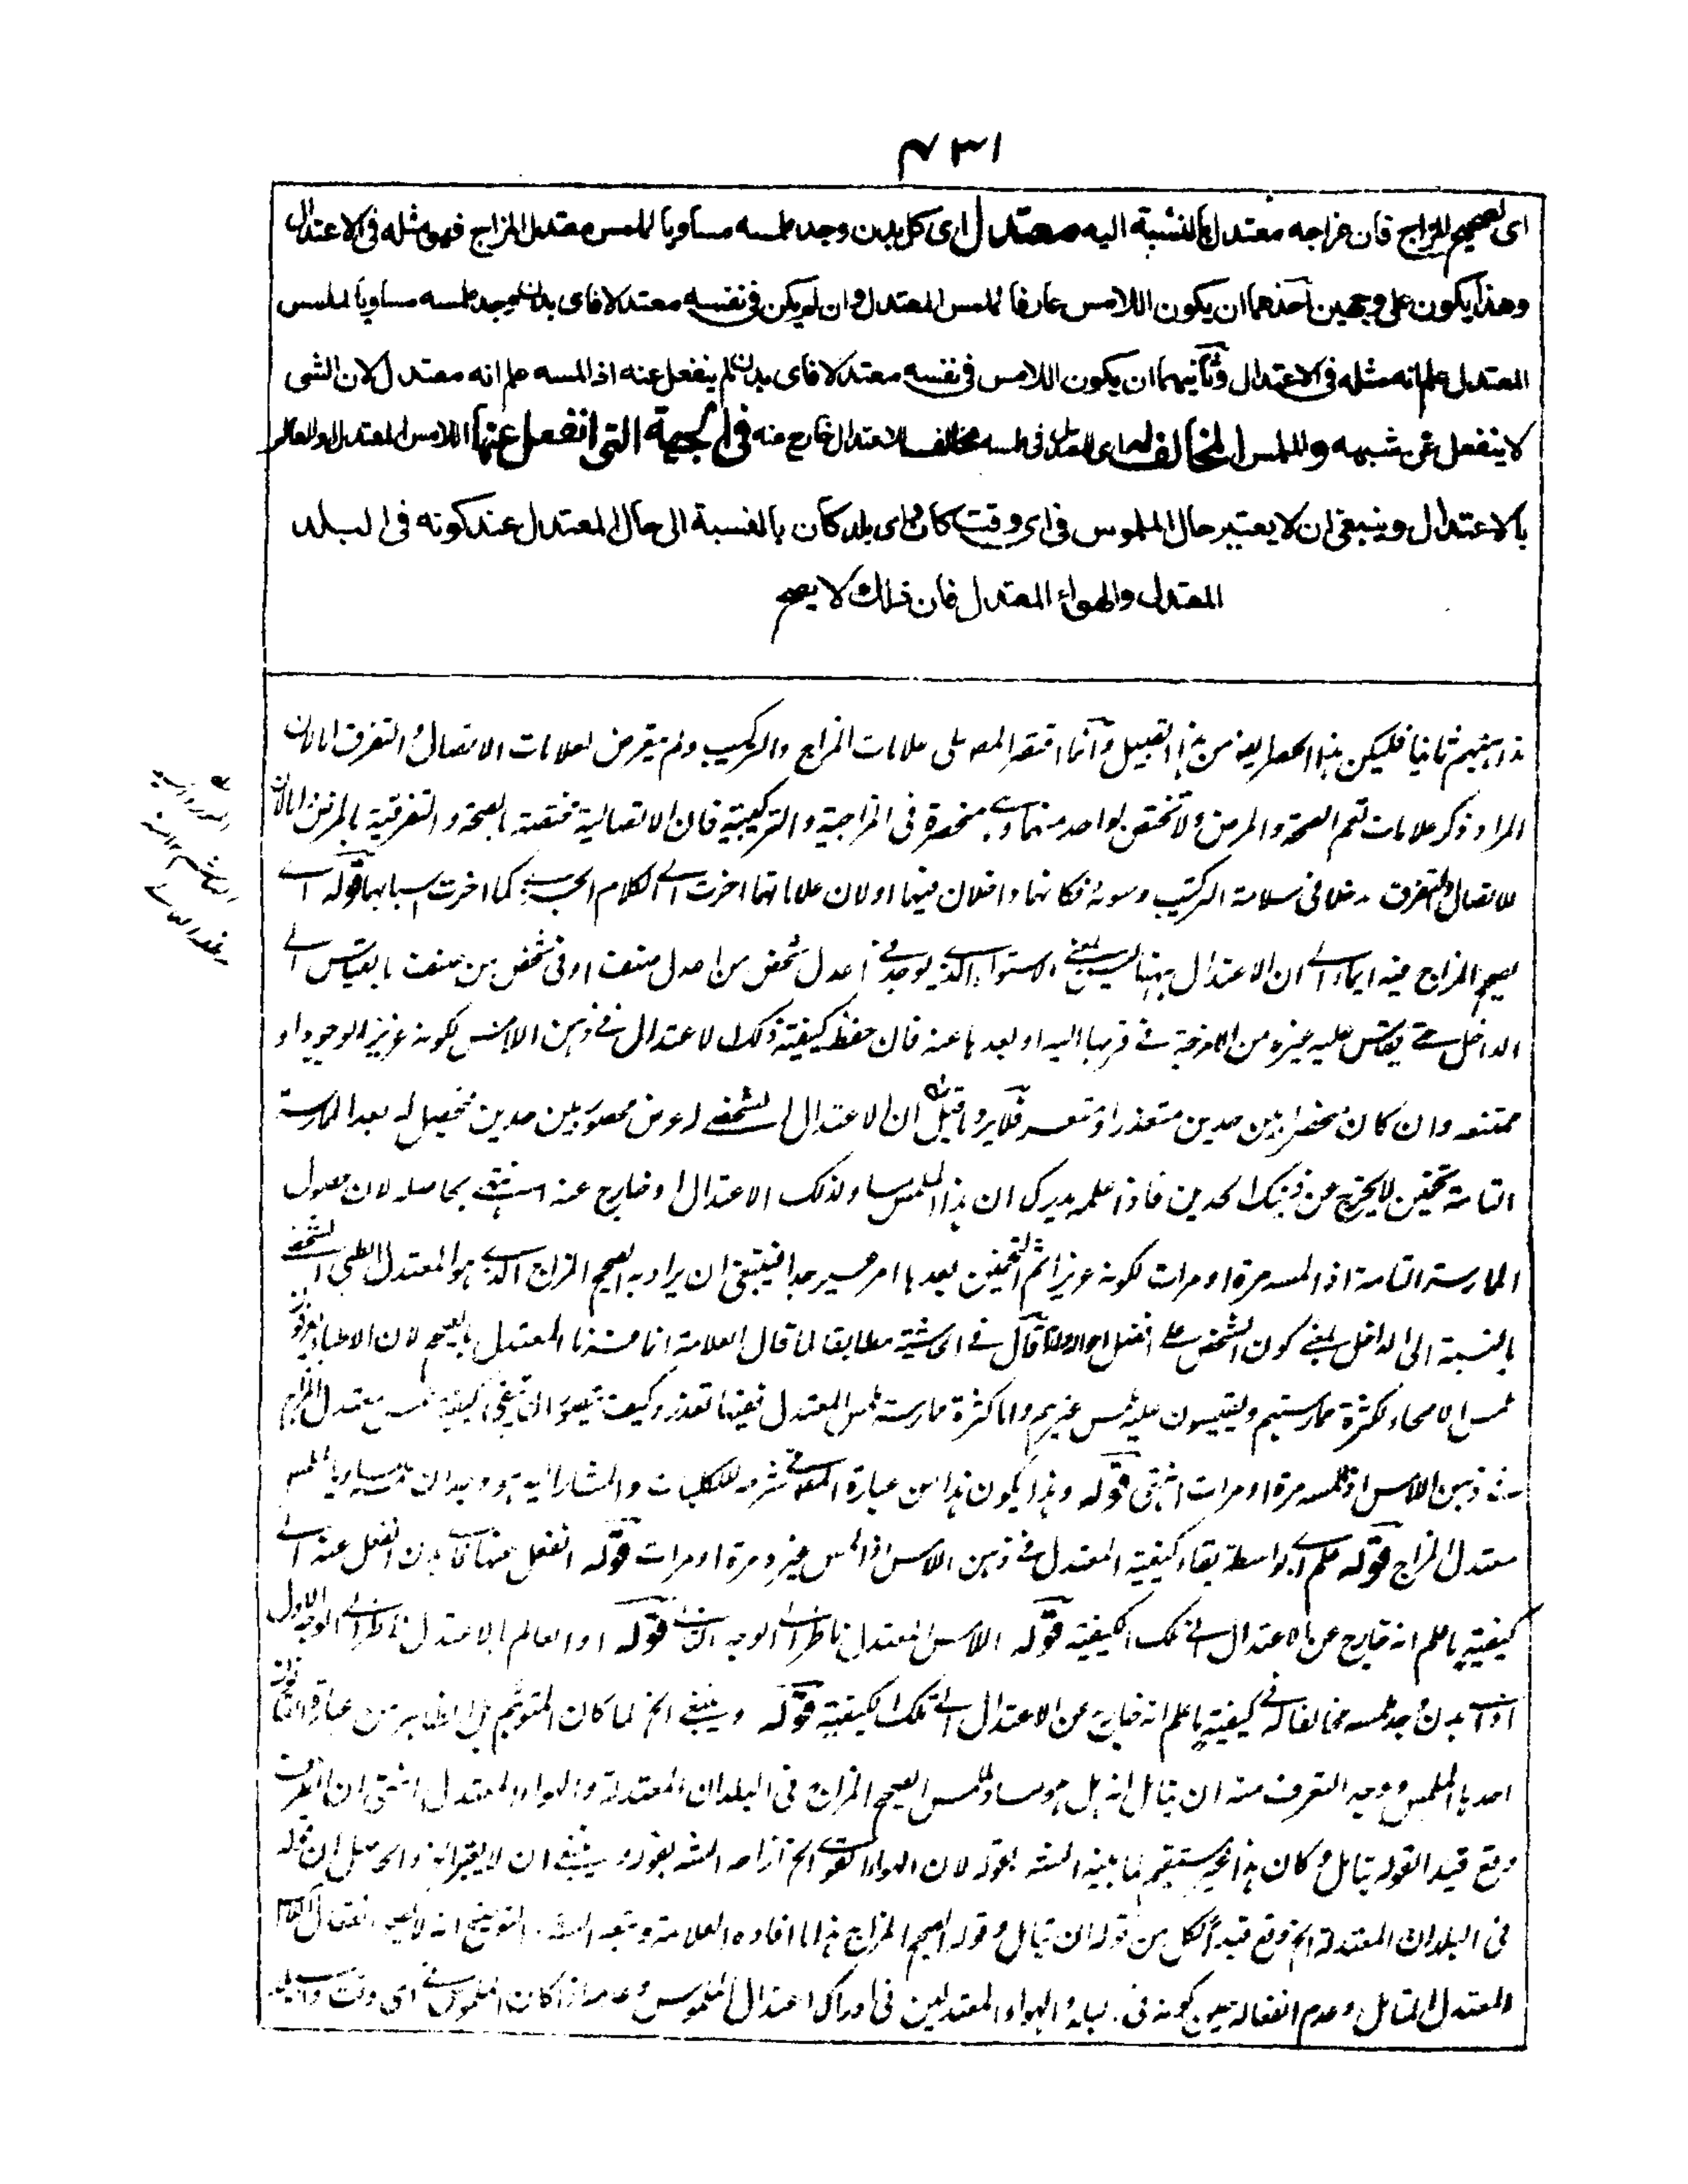 ٤٣١
اى لصحيح المزاج فان مزاجه معتدل بالنسبة اليه معتدل اى كل بدن وجد ملمسه مساويا لملمس معتدل المزاج فهو مثله فى الاعتدال
وهذا يكون على وجهين احدهما ان يكون اللامس عارفا لملمس المعتدل وان لم يكن فى نفسه معتدلا فاى بدن وجد ملمسه مساويا لملمس
المعتدل علم انه مثله فى الاعتدال وثانيهما ان يكون اللامس فى نفسه معتدلا فاى بدن لم ينفعل عنه اذا لمسه علم انه معتدل لان الشى
لا ينفعل عن شبيهه والملمس المخالف له اى للمعتدل فى ملمسه مخالف للاعتدال خارج عنه فى الجهة التى انفعل عنها اللامس المعتدل او العالم
بالاعتدال وينبغى ان لا يعتبر حال الملموس فى اى وقت كان واى بلد كان بالنسبة الى حال المعتدل عند كونه فى البلد
المعتدل والهواء المعتدل فان ذلك لا يصح
ثانيا فليكن هذا الحصر ايضا من هذا القبيل وانما اقتصر المصـ على علامات المزاج والتركيب ولم يتعرض لعلامات الاتصال والتفرق اما لان
المراد ذكر علامات تعم الصحة والمرض ولا تختص بواحد منهما وهى منحصرة فى المزاجية والتركيبية فان الاتصالية مختصة بالصحة والتفرقية بالمرض واما لان
للاتصال والتفرق دخلا فى سلامة التركيب وسوئه فكانهما داخلان فيها او لان علاماتهما اخرت الى الكلام الجزئى كما اخرت اسبابهما قوله اى
لصحيح المزاج فيه ايماء الى ان الاعتدال ههنا ليس بمعنى الاستواء الذى يوجد فى اعدل شخص من اعدل صنف او فى شخص من صنف بالقياس الى
الداخل حتى يقاس عليه غيره من الامزجة فى قربها اليه او بعدها عنه فان حفظ كيفية ذلك الاعتدال فى ذهن اللامس لكونه عزيز الوجود او
ممتنعه وان كان منحصرا بين حدين متعذر او متعسر فلا يرد ما قيل ان الاعتدال الشخصى له عرض محصور بين حدين فيحصل له بعد الممارسة
التامة تخمين لا يخرج عن ذينك الحدين فاذا علمه يدرك ان هذا الملمس مساو لذلك الاعتدال او خارج عنه انتهى بحاصله لان حصول
الممارسة التامة اذا لمسه مرة او مرات لكونه عزيزا ثم التخمين بعدها امر عسير جدا فينبغى ان يراد به الصحيح المزاج الذى هو المعتدل الطبى الشخصى
بالنسبة الى الداخل بمعنى كون الشخص على افضل احواله ولذا قال فى الحاشية مطابقا لما قال العلامة انما فسرنا المعتدل بالصحيح لان الاطباء يعرفون
لمس الاصحاء لكثرة ممارستهم ويقيسون عليه لمس غيرهم واما كثرة ممارسة لمس المعتدل ففيها تعذر وكيف يتصور ان تبقى كيفية لمس معتدل المزاج
فى ذهن اللامس اذا لمسه مرة او مرات انتهى قوله وهذا يكون هذا من عبارة المصـ فى شرحه للكليات والمشار اليه هو وجدان ملمسه مساويا لملمس
معتدل المزاج قوله علم اى بواسطة بقاء كيفية المعتدل فى ذهن اللامس اذا لمس غيره مرة او مرات قوله انفعل عنها فاى بدن انفعل عنه الى
كيفية ما علم انه خارج عن الاعتدال الى تلك الكيفية قوله اللامس المعتدل ناظر الى الوجه الثانى قوله او العالم بالاعتدال ناظر الى الوجه الاول
اذ اى بدن وجد ملمسه مخالفا له فى كيفية ما علم انه خارج عن الاعتدال الى تلك الكيفية قوله وينبغى الخ لما كان المتوهم بل الظاهر من عبارة القانون
احدها الملمس ووجه التعرف منه ان يتامل انه هل هو مساو للمس الصحيح المزاج فى البلدان المعتدلة والهواء المعتدل انتهى ان الظرف
وقع قيد القوله يتامل وكان هذا غير مستقيم لما بينه الشـ بقوله لان الهواء القوى الخ ازاحه الشـ بقوله وينبغى ان لا يعتبر الخ والحاصل ان قوله
فى البلدان المعتدلة الخ وقع قيدا لكل من قوله ان يتامل وقوله الصحيح المزاج هذا ما افاده العلامة وتبعه الشـ التوضيح انه لا يعتبر انفعال اللامس
المعتدل المتامل وعدم انفعاله حين كونه فى البلد والهواء المعتدلين فى ادراك اعتدال الملموس وعدمه اذا كان الملموس فى اى وقت واى بلد